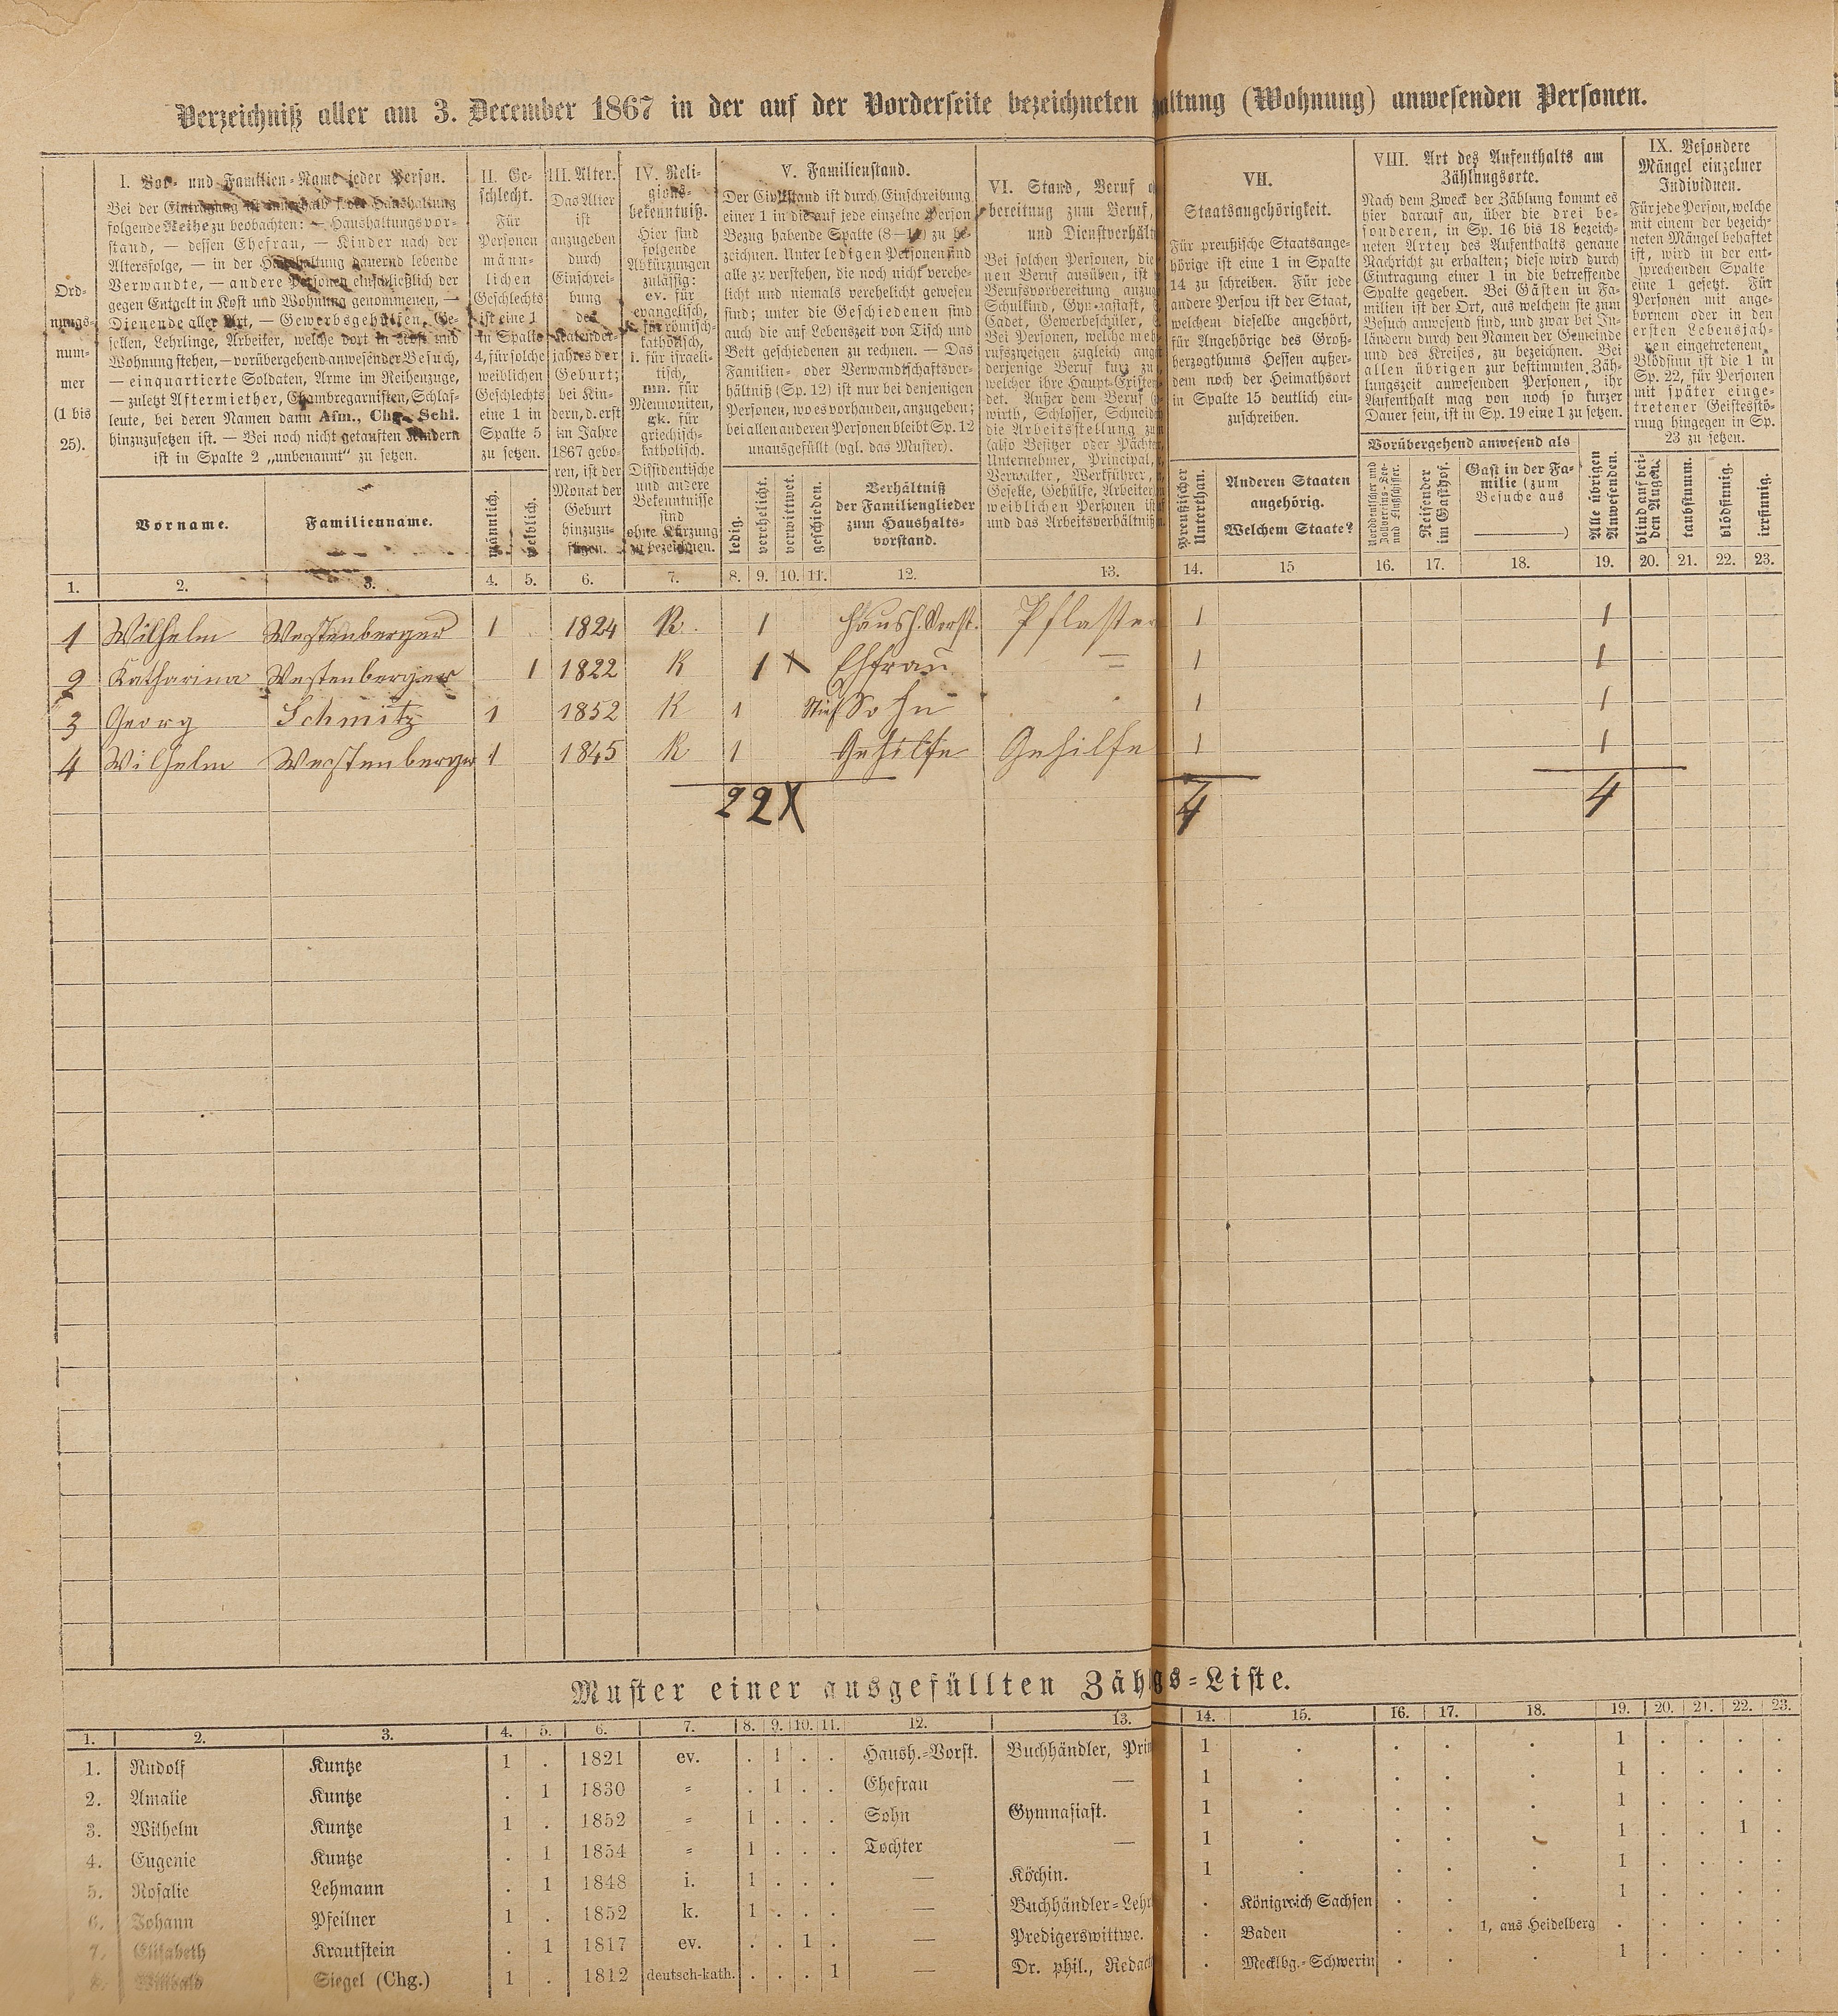 Verzeichniß aller am 3. December 1867 in der auf der Vorderseite bezeichneten altung (Wohnung) anwesenden Personen.
Ord-
nungs-
num-
mer
(1 bis
25).
I. Vor- und Familien-Name jeder Person.
Bei der Eintragung ist innerhalb jeder Haushaltung
folgende Reihe zu beobachten: — Haushaltungsvor-
stand, — dessen Ehefrau, — Kinder nach der
Altersfolge, — in der Haushaltung dauernd lebende
Verwandte, — andere Personen einschließlich der
gegen Entgelt in Kost und Wohnung genommenen, —
Dienende aller Art, — Gewerbsgehülfen, Ge-
sellen, Lehrlinge, Arbeiter, welche dort in Kost und
Wohnung stehen, — vorübergehend anwesender Besuch,
— einquartierte Soldaten, Arme im Reihenzuge,
— zuletzt Aftermiether, Chambregarnisten, Schlaf-
leute, bei deren Namen dann Afm., Chg., Schl.
hinzuzusetzen ist. — Bei noch nicht getauften Kindern
ist in Spalte 2 „unbenannt“ zu setzen.
Vorname.
Familienname.
II. Ge-
schlecht.
Für
Personen
männ-
lichen
Geschlechts
ist eine 1
in Spalte
4, für solche
weiblichen
Geschlechts
eine 1 in
Spalte 5
zu setzen.
männlich.
weiblich.
III. Alter.
Das Alter
ist
anzugeben
durch
Einschrei-
bung
des
Kalender-
jahres der
Geburt;
bei Kin-
dern, d. erst
im Jahre
1867 gebo-
ren, ist der
Monat der
Geburt
hinzuzu-
fügen.
IV. Reli-
gions-
bekenntniß.
Hier sind
folgende
Abkürzungen
zulässig:
ev. für
evangelisch,
k. für römisch-
katholisch,
i. für israeli-
tisch,
mn. für
Mennoniten,
gk. für
griechisch-
katholisch.
Dissidentische
und andere
Bekenntnisse
sind
ohne Kürzung
zu bezeichnen.
V. Familienstand.
Der Civilstand ist durch Einschreibung
einer 1 in die auf jede einzelne Person
Bezug habende Spalte (8—11) zu be-
zeichnen. Unter ledigen Personen sind
alle zu verstehen, die noch nicht verehe-
licht und niemals verehelicht gewesen
sind; unter die Geschiedenen sind
auch die auf Lebenszeit von Tisch und
Bett geschiedenen zu rechnen. — Das
Familien- oder Verwandtschaftsver-
hältniß (Sp. 12) ist nur bei denjenigen
Personen, wo es vorhanden, anzugeben;
bei allen anderen Personen bleibt Sp. 12
unausgefüllt (vgl. das Muster).
ledig.
verehelicht.
verwittwet.
geschieden.
Verhältniß
der Familienglieder
zum Haushalts-
vorstand.
VI. Stand, Beruf o
bereitung zum Beruf,
und Dienstverhält
Bei solchen Personen, die
nen Beruf ausüben, ist
Berufsvorbereitung anzug
Schulkind, Gymnasiast,
Cadet, Gewerbeschüler,
Bei Personen, welche meh
rufszweigen zugleich ange
derjenige Beruf kurz zu
welcher ihre Haupt-Existen
det. Außer dem Beruf
wirth, Schlosser, Schneid
die Arbeitsstellung zum
(also Besitzer oder Pächter,
Unternehmer, Principal,
Verwalter, Werkführer,
Geselle, Gehülfe, Arbeiter
weiblichen Personen ist
und das Arbeitsverhältniß
VII.
Staatsangehörigkeit.
Für preußische Staatsange-
hörige ist eine 1 in Spalte
14 zu schreiben. Für jede
andere Person ist der Staat,
welchem dieselbe angehört,
für Angehörige des Groß-
herzogthums Hessen außer-
dem noch der Heimathsort
in Spalte 15 deutlich ein-
zuschreiben.
Preußischer
Unterthan.
Anderen Staaten
angehörig.
Welchem Staate?
VIII. Art des Aufenthalts am
Zählungsorte.
Nach dem Zweck der Zählung kommt es
hier darauf an, über die drei be-
sonderen, in Sp. 16 bis 18 bezeich-
neten Arten des Aufenthalts genaue
Nachricht zu erhalten; diese wird durch
Eintragung einer 1 in die betreffende
Spalte gegeben. Bei Gästen in Fa-
milien ist der Ort, aus welchem sie zum
Besuch anwesend sind, und zwar bei In-
ländern durch den Namen der Gemeinde
und des Kreises, zu bezeichnen. Bei
allen übrigen zur bestimmten Zäh-
lungszeit anwesenden Personen, ihr
Aufenthalt mag von noch so kurzer
Dauer sein, ist in Sp. 19 eine 1 zu setzen.
Vorübergehend anwesend als
Norddeutscher und
Zollvereins-See-
und Flußschiffer.
Reisender
im Gasthof.
Gast in der Fa-
milie (zum
Besuche aus
———)
Alle übrigen
Anwesenden.
IX. Besondere
Mängel einzelner
Individuen.
Für jede Person, welche
mit einem der bezeich-
neten Mängel behaftet
ist, wird in der ent-
sprechenden Spalte
eine 1 gesetzt. Für
Personen mit ange-
bornem oder in den
ersten Lebensjah-
ren eingetretenem
Blödsinn ist die 1 in
Sp. 22, für Personen
mit später einge-
tretener Geistesstö-
rung hingegen in Sp.
23 zu setzen.
blind auf bei-
den Augen.
taubstumm.
blödsinnig.
irrsinnig.
1. 2. 3. 4. 5. 6. 7. 8. 9. 10. 11. 12. 13. 14. 15 16. 17. 18. 19. 20. 21. 22. 23.
1 Wilhelm Westenberger 1 1824 K. 1 Haush. Vorst. Pflaster 1 1
2 Katharina Westenberger 1 1822 K 1 X Ehfrau = 1 1
3 Georg Schmitz 1 1852 K 1 Stief Sohn 1 1
4 Wilhelm Westenberger 1 1845 K 1 Gehilfe Gehilfe 1 1
2 2 X 4 4
Muster einer ausgefüllten Zäh gs-Liste.
1. 2. 3. 4. 5. 6. 7. 8. 9. 10. 11. 12. 13. 14. 15. 16. 17. 18. 19. 20. 21. 22. 23.
1. Rudolf Kuntze 1 . 1821 ev. . 1 . . Haush.-Vorst. Buchhändler, Prin 1 . . . . 1 . . . .
2. Amalie Kuntze . 1 1830 = . 1 . . Ehefrau — 1 . . . . 1 . . . .
3. Wilhelm Kuntze 1 . 1852 = 1 . . . Sohn Gymnasiast. 1 . . . . 1 . . . .
4. Eugenie Kuntze . 1 1854 = 1 . . . Tochter — 1 . . . . 1 . . 1 .
5. Rosalie Lehmann . 1 1848 i. 1 . . . — Köchin. 1 . . . . 1 . . . .
6. Johann Pfeilner 1 . 1852 k. 1 . . . — Buchhändler-Lehr . Königreich Sachsen . . . 1 . . . .
7. Elisabeth Krautstein . 1 1817 ev. . . 1 . — Predigerswittwe. . Baden . . 1, aus Heidelberg . . . . .
8. Willibald Siegel (Chg.) 1 . 1812 deutsch-kath. . . . 1 — Dr. phil., Redact . Mecklbg.-Schwerin . . . 1 . . . .